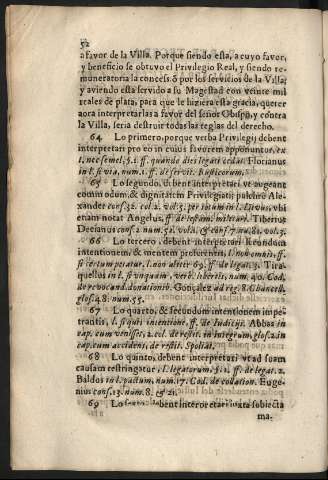 52
a favor de la Villa. Porque siendo esta, a cuyo favor,
y beneficio se obtuvo el Privilegio Real, y siendo re-
muneratoria la concessõ por los servicios de la Villa;
y aviendo esta servido a su Magestad con veinte mil
reales de plata, para que le hiziera esta gracia, querer
aora interpretarlas a favor del señor Obispo, y contra
la Villa, seria destruir todas las reglas del derecho.
64 Lo primero, porque verba Privilegij debent
interpretari pro eo in cuius favorem apponuntur, ex
l. nec semel, §. 1. ff. quando dies legati cedat. Florianus
in l. si via, num. 1. ff. de servit. Rusticorum.
65 Lo segundo, debent interpretari vt augeant
commodum, & dignitatem Privilegiati: pulchrè Ale-
xander cons. 32. col. 2. vol. 5. per totum in l. Divus, vbi
etiam notat Angelus, ff. de testam. militari. Tiberius
Decianus cons. 2. num. 52. volū. 6. & cons. 7. nu. 81. vol. 3.
66 Lo tercero, debent interpretari secundum
intentionem, & mentem proferentis, l. non omnis, ff.
si certum petatur, l. non aliter 69. ff. de legat. 3. Tira-
quellus in l. si vnquam, verb. libertis, num. 40. Cod.
de revocand. donationib. Gonçalez ad reg. 8. Chancell.
glos. 48. num. 55.
67 Lo quarto, & secundum intentionem impe-
trantis, l. si qui intentione, ff. de Iudicijs. Abbas in
cap. cum venisset, 2. col. de restit. in integrum, glos. 2. in
cap. cum accidens, de restit. Spoliat.
68 Lo quinto, debent interpretari vt ad suam
causam restringatur, l. legatorum, §. 1. ff. de legat. 2.
Baldos in l. pactum, num. 17. Cod. de collation. Euge-
nius cons. 13. num. 8. & 21.
69 Lo debent interpretari iuxta subiecta
ma-